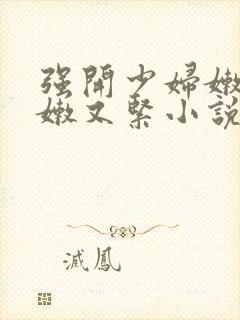 强開少婦嫩
嫩又緊小說
滅鳳